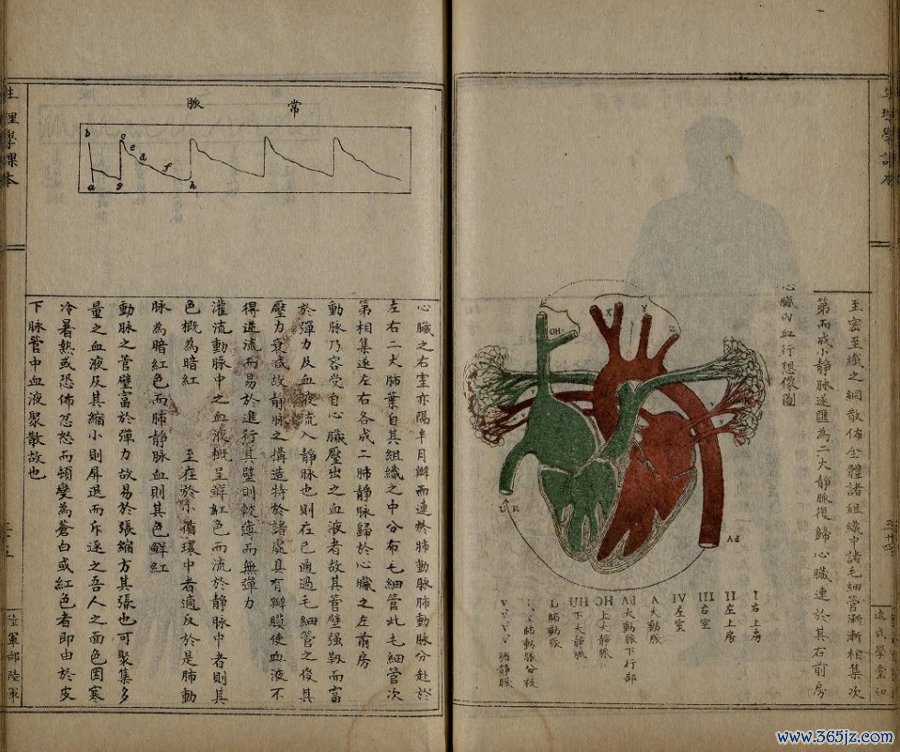 生理學課本
至密至纖之網散佈全體諸組織中諸毛細管漸漸相集次
第而成小靜脉遂匯為二大靜脉復歸心臟連於其右前房
心臟內血行想像圖
Ad
I 右上房
II 左上房
III 右室
VI 左室
A 大動脈
Ad 大動脈下行部
HC 上大靜脈
HU 下大靜脈
L 肺動脈
肺動脈分枝
V V V V 肺靜脈
速成學堂印
常脈
b c e d f
a g h
心臟之右室亦隔半月瓣而連於肺動脉肺動脉分赴於
左右二大肺葉自其組織之中分布毛細管此毛細管次
第相集遂左右各成二肺静脉歸於心臟之左前房
動脉乃容受自心臟壓出之血液者故其管壁强靱而富
於彈力及血液流入静脉也則在已通過毛細管之後其
壓力衰減故静脉之構造特於諸處具有瓣膜使血液不
得逆流而易於進行其壁則軟薄而無彈力
灌流動脉中之血液概呈鮮紅色而流於静脉中者則其
色概為暗紅 至在於小循環中者適反於是肺動
脉為暗紅色而肺静脉血則其色鮮紅
動脉之管壁富於彈力故易於張縮方其張也可聚集多
量之血液及其縮小則屏退而斥逐之吾人之面色因寒
冷暑熱或恐佈忿怒而頓變為蒼白或紅色者即由於皮
下脉管中血液聚散故也
生理學課本
陸軍部陸軍
www.365jz.com